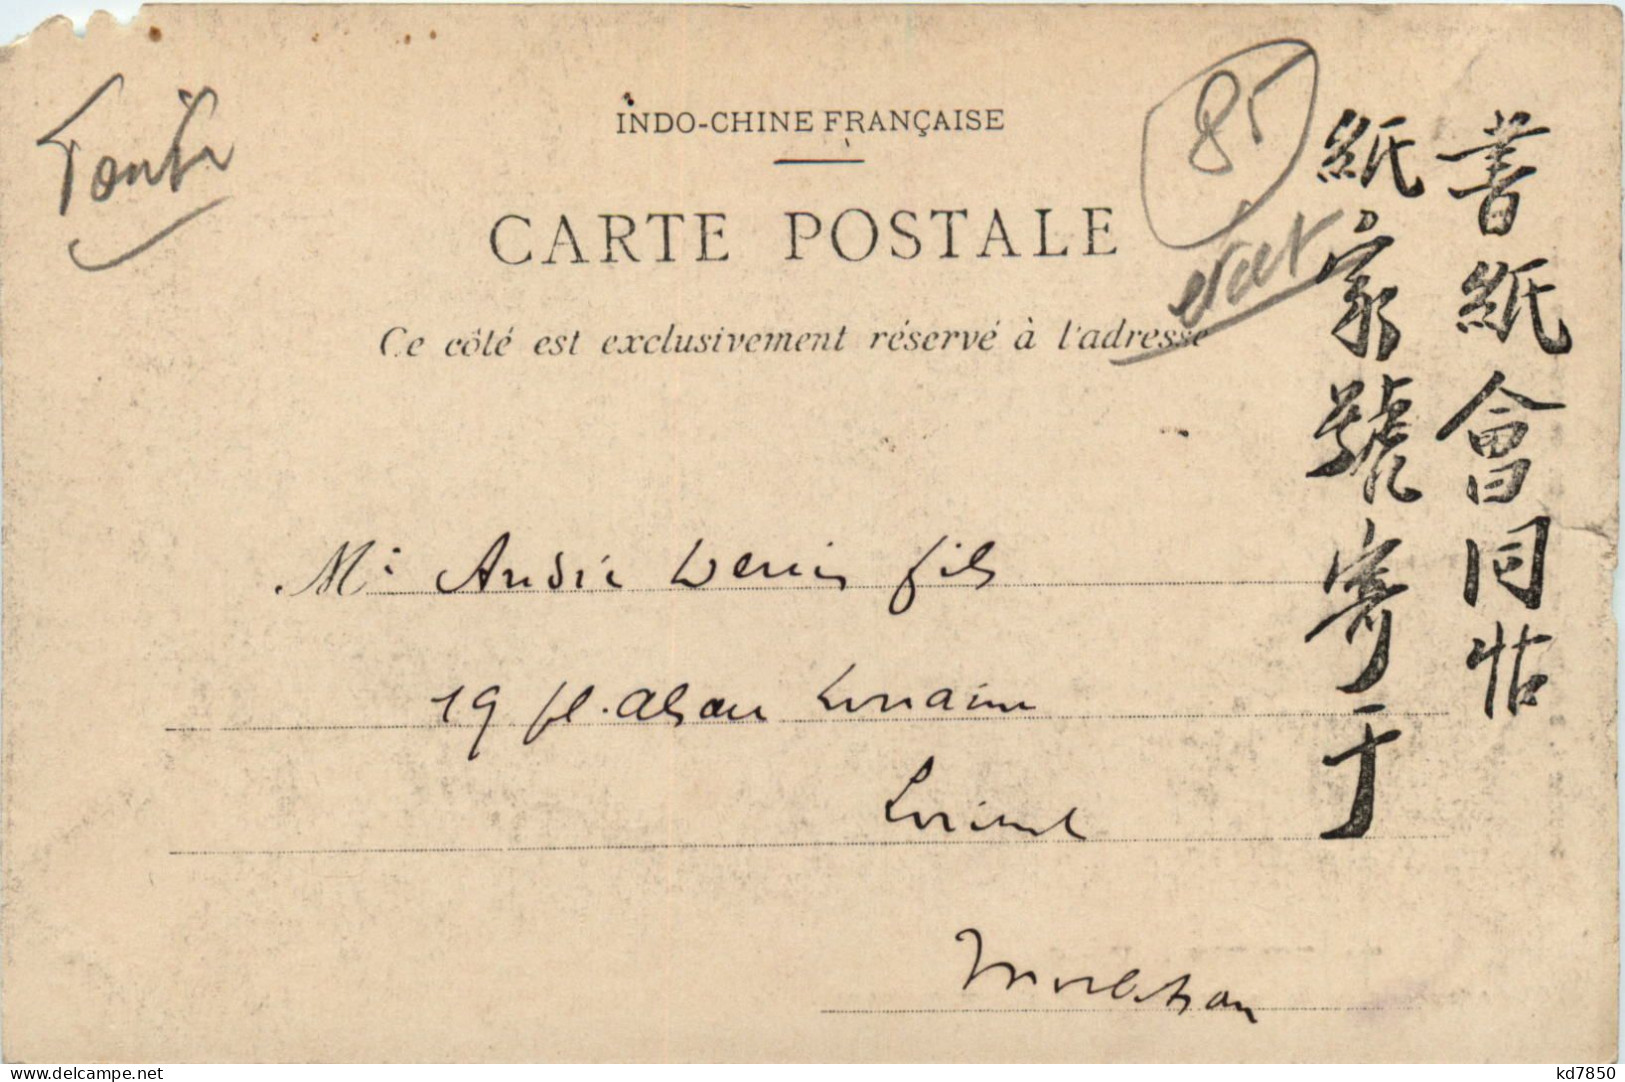 INDO-CHINE FRANÇAISE
CARTE POSTALE
Ce côté est exclusivement réservé à l'adresse
85
état
書紙會同帖
紙家號寄于
M. André Denis fils
19 pl. Alsace Lorraine
Lorient
Morbihan
kd7850